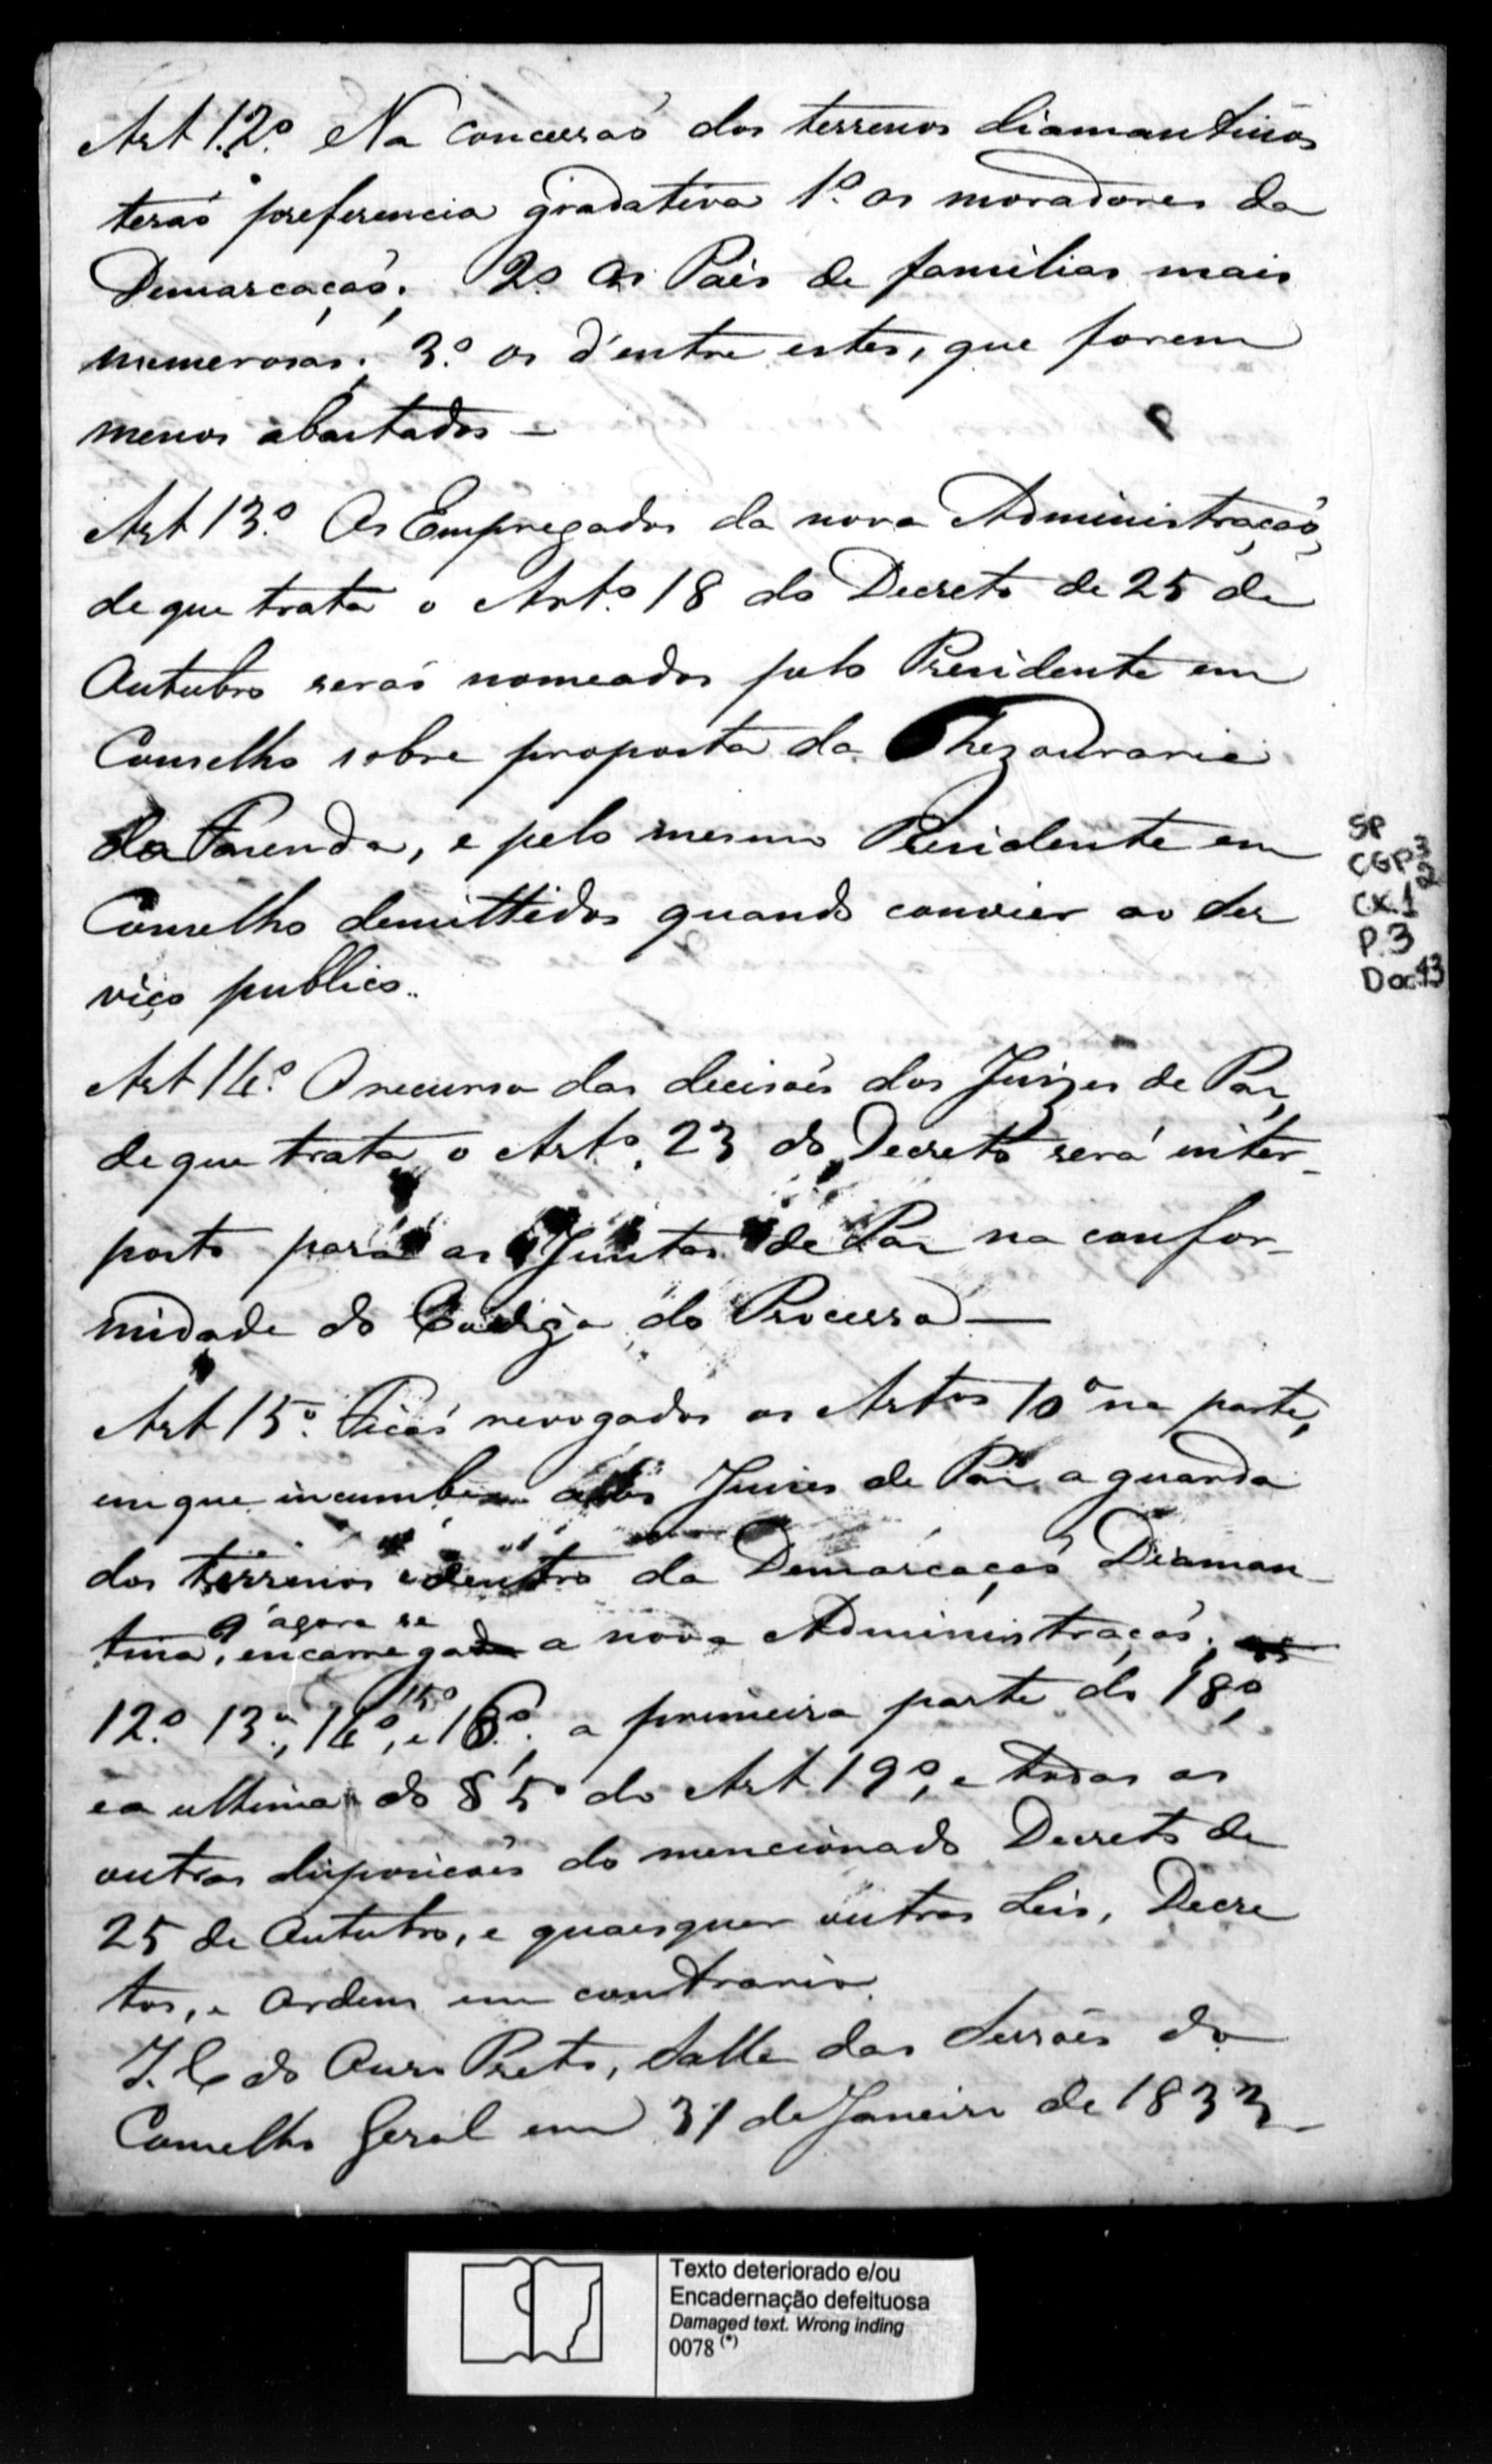 Art 12.º Na concessaõ dos terrenos diamantinos
teraõ preferencia gradativa 1.º os moradores da
Demarcaçaõ; 2.º os Pais de familias mais
numerosas; 3.º os d'entre estes, que forem
menos abastados —
Art 13.º Os Empregados da nova Administraçaõ,
de que trata o Art.º 18 do Decreto de 25 de
Outubro seraõ nomeados pelo Presidente em
Conselho sobre proposta da Thezouraria
da Fazenda, e pelo mesmo Presidente em
Conselho demittidos quando convier ao Ser
viço publico..
Art 14.º O recurso das decisoẽs dos Juizes de Paz,
de que trata o Art.º 23 do Decreto será inter-
posto para as Juntas de Paz na confor-
midade do Codigo do Processo —
Art 15.º Ficaõ revogados os Artos 10º na parte,
em que incumbe aos Juizes de Paz a guarda
dos terrenos dentro da Demarcaçaõ Diaman-
tina, q' agora se encarrega a nova Administraçaõ;
12.º 13.º, 14.º, 15º e 16.º; a primeira parte do 18.º,
e a ultima do § 5º do Art. 19.º, e todas as
outras disposicoẽs do mencionado Decreto de
25 de Outubro, e quaesquer outras Leis, Decre
tos, e Ordens em contrario.
I. C do Ouro Preto, Salla das Sessoẽs do
Conselho Geral em 31 de Janeiro de 1833
SP
CGP3
CX.1 2
P.3
Doc.43
Texto deteriorado e/ou
Encadernação defeituosa
Damaged text. Wrong inding
0078 (*)